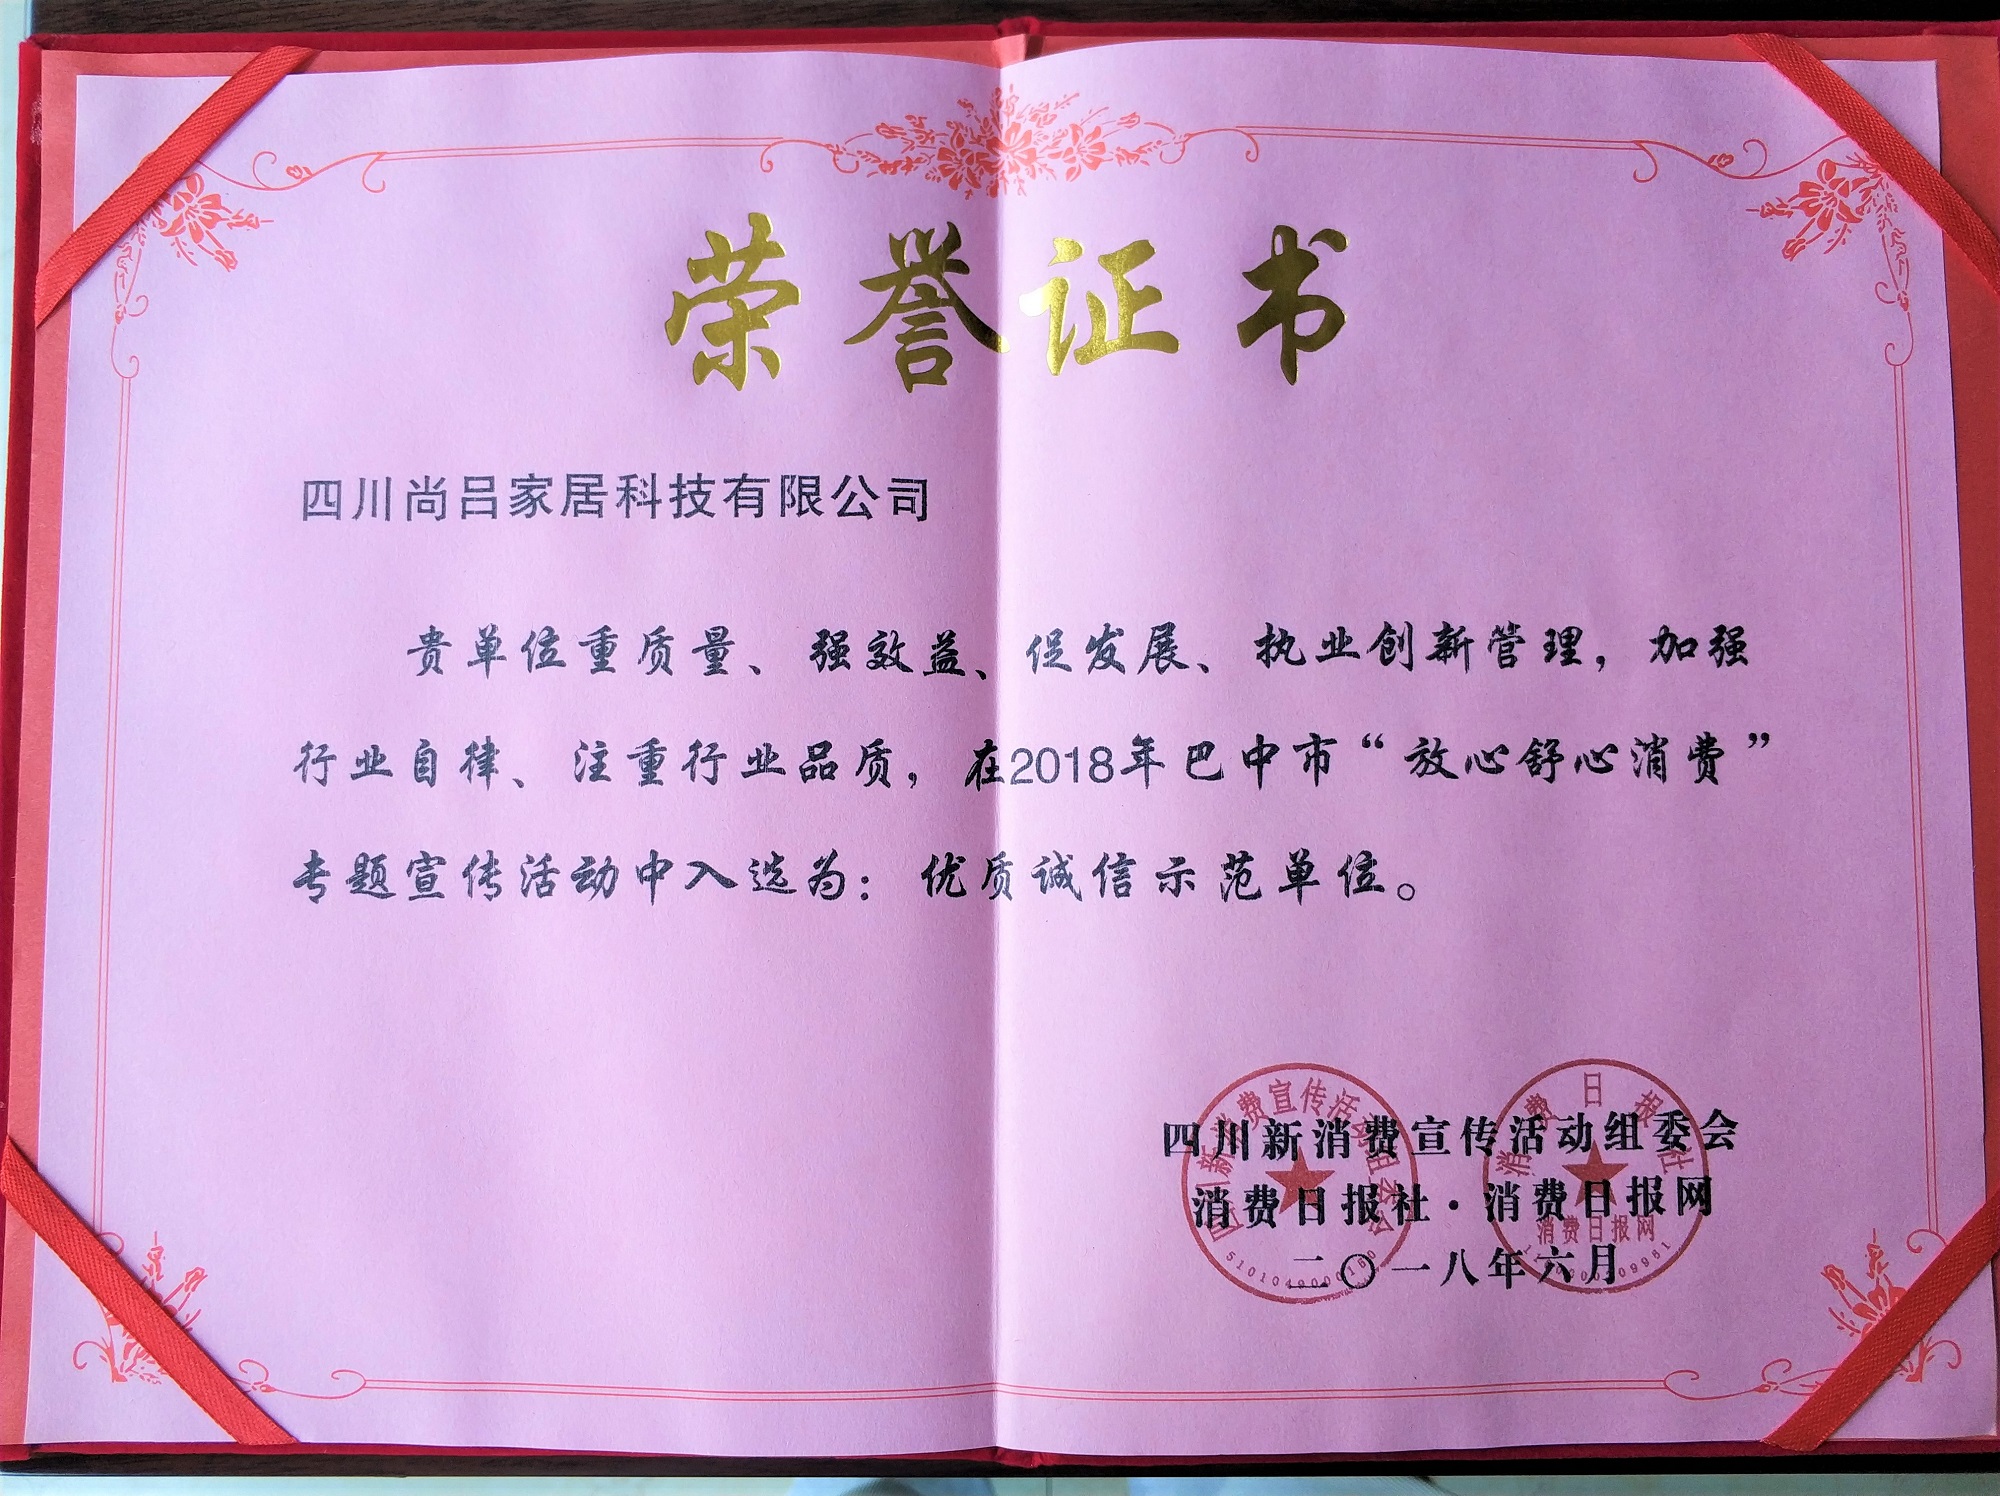 荣誉证书
四川尚吕家居科技有限公司
贵单位重质量、强效益、促发展、执业创新管理，加强
行业自律、注重行业品质，在2018年巴中市“放心舒心消费”
专题宣传活动中入选为：优质诚信示范单位。
四川新消费宣传活动组委会
消费日报社·消费日报网
二〇一八年六月
四川新消费宣传活动组委会
消费日报社
消费日报网